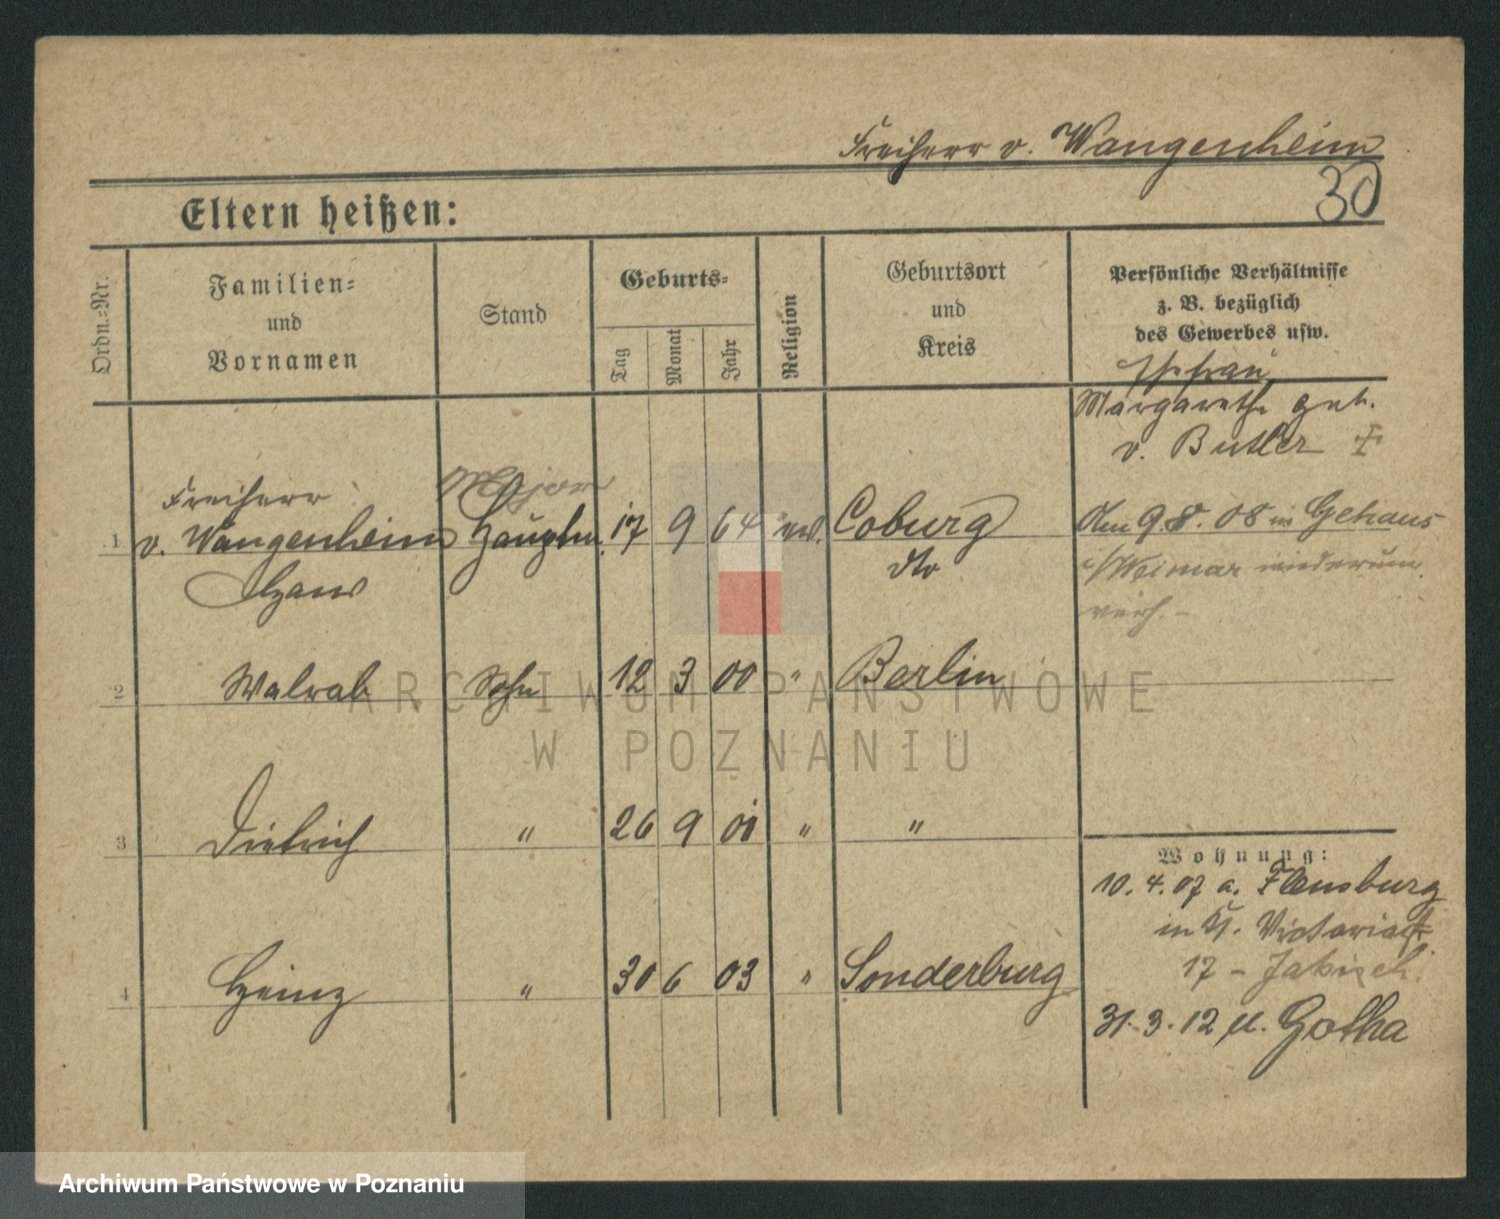 Freiherr v. Wangenheim
30
Eltern heißen:
Ordn.-Nr.
Familien-
und
Vornamen
Stand
Geburts-
Tag
Monat
Jahr
Religion
Geburtsort
und
Kreis
Persönliche Verhältnisse
z. B. bezüglich
des Gewerbes usw.
Ehefrau
Margarethe geb.
v. Butler †
Freiherr Major
1 v. Wangenheim Hauptm. 17 9 64 ev. Coburg
Hans dto
Am 9.8.08 in Gehaus
i/Weimar wiederum
verh. -
2 Walrab Sohn 12 3 00 " Berlin
3 Dietrich " 26 9 01 " "
4 Heinz " 30 6 03 " Sonderburg
Wohnung:
10.4.07 a. Flensburg
in Kl. Victoriast.
17 -
31.3.12 n. Gotha
ARCHIWUM PAŃSTWOWE
W POZNANIU
Archiwum Państwowe w Poznaniu